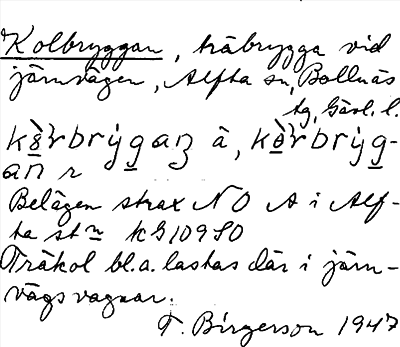 Kolbryggan, träbrygga vid
järnvägen, Alfta sn, Bollnäs
tg, Gävl. l.
Belägen strax NO A i Alf-
ta stn kG109S0
Träkol bl.a. lastas där i järn-
vägsvagnar.
T. Birgerson 1947